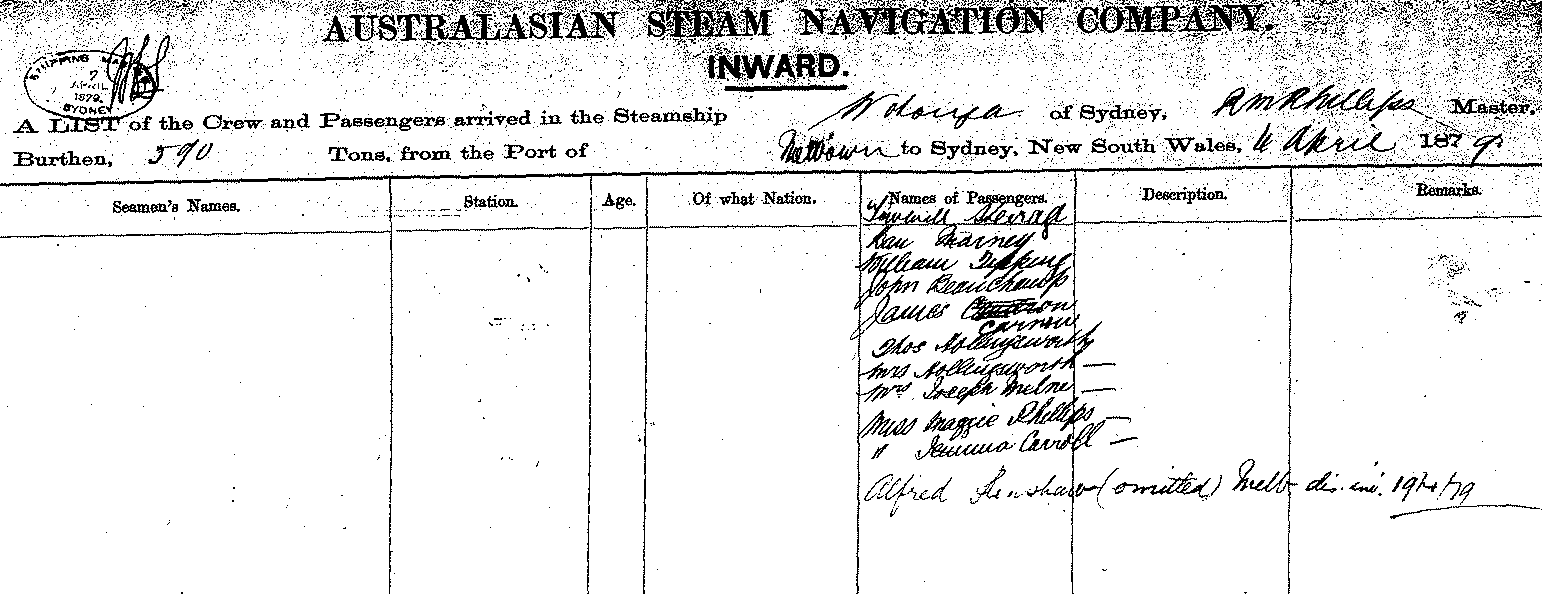 AUSTRALASIAN STEAM NAVIGATION COMPANY.
INWARD.
SHIPPING
7
APRIL
1879
SYDNEY
A LIST of the Crew and Passengers arrived in the Steamship Wotonga of Sydney, R M Phillips Master,
Burthen, 590 Tons, from the Port of to Sydney, New South Wales, April 1879
Seamen's Names. Station. Age. Of what Nation. Names of Passengers. Description. Remarks.
William
John Beauchamp
James
Thos Hollingsworth
Mrs Hollingsworth —
Mrs Joseph Milne —
Miss Maggie Phillips —
" Jemima Carroll —
Alfred Henshaw (omitted) Melb